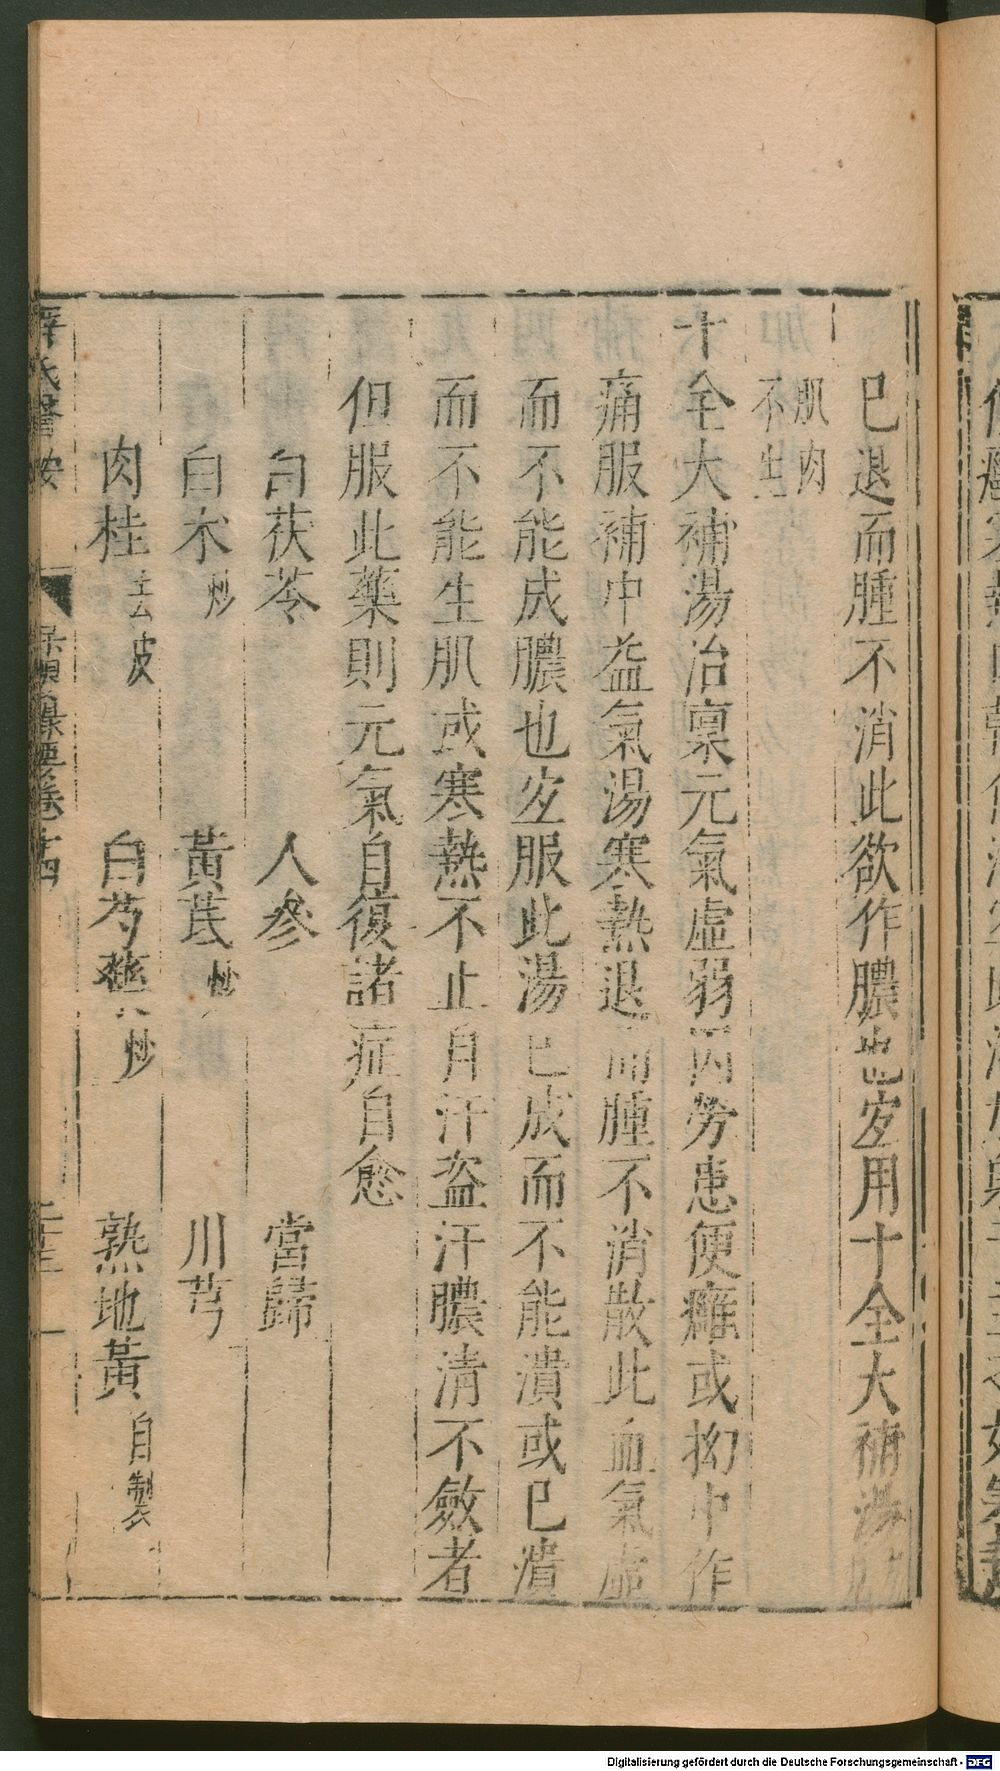 已退而腫不消此欲作膿也宜用十全大補湯
肌肉
不生
十全大補湯治稟元氣虛弱因勞患便癰或拗中作
痛服補中益氣湯寒熱退而腫不消散此血氣虛
而不能成膿也宜服此湯已成而不能潰或已潰
而不能生肌或寒熱不止自汗盜汗膿清不斂者
但服此藥則元氣自復諸症自愈
白茯苓 人參 當歸
白术炒 黃芪炒 川芎
肉桂去皮 白芍藥炒 熟地黃自製
薛氏醫按 保嬰撮要卷十四
Digitalisierung gefördert durch die Deutsche Forschungsgemeinschaft - DFG